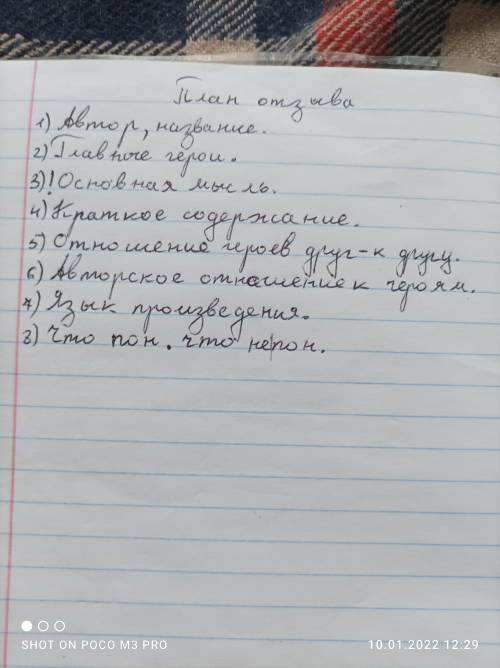 План отзыва
1) Автор, название.
2) Главные герои.
3) ! Основная мысль.
4) Краткое содержание.
5) Отношение героев друг-к другу.
6) Авторское отношение к героям.
7) Язык произведения.
8) Что пон. что не пон.
SHOT ON POCO M3 PRO
10.01.2022 12:29